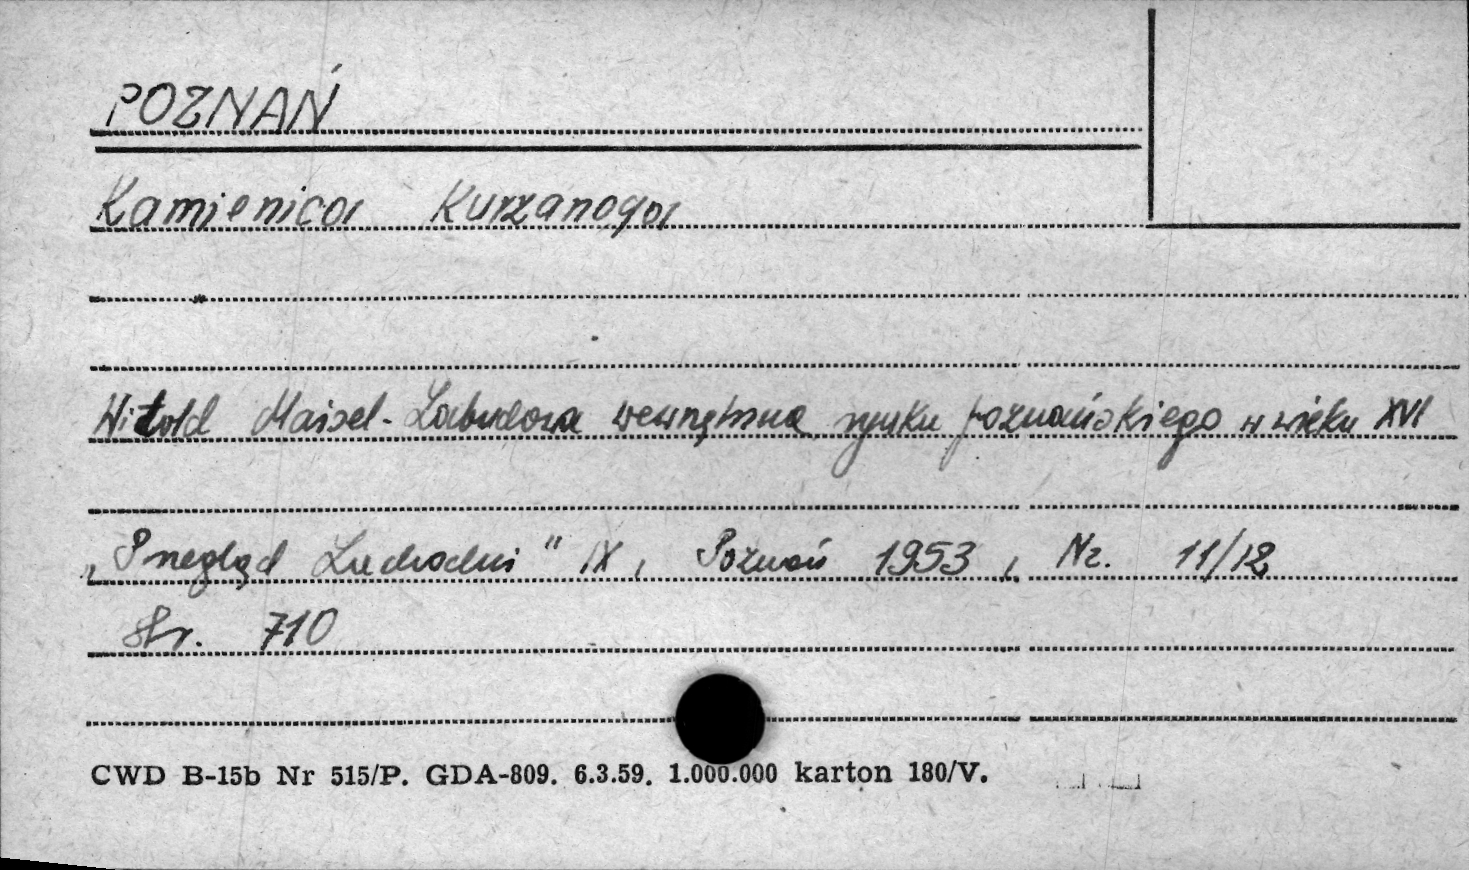 POZNAŃ
Kamienica Kurzanoga
Witold Maisel - Zabudowa wewnętrzna rynku poznańskiego w wieku XVI
„Przegląd Zachodni" IX, Poznań 1953, Nr. 11/12
Str. 710
CWD B-15b Nr 515/P. GDA-809. 6.3.59. 1.000.000 karton 180/V.